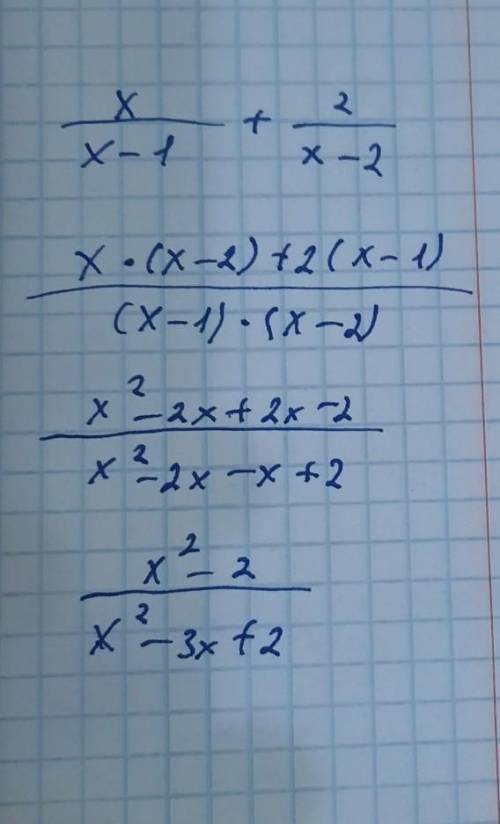 x/(x-1) + 2/(x-2)
(x·(x-2)+2(x-1))/((x-1)·(x-2))
(x²-2x+2x-2)/(x²-2x-x+2)
(x²-2)/(x²-3x+2)